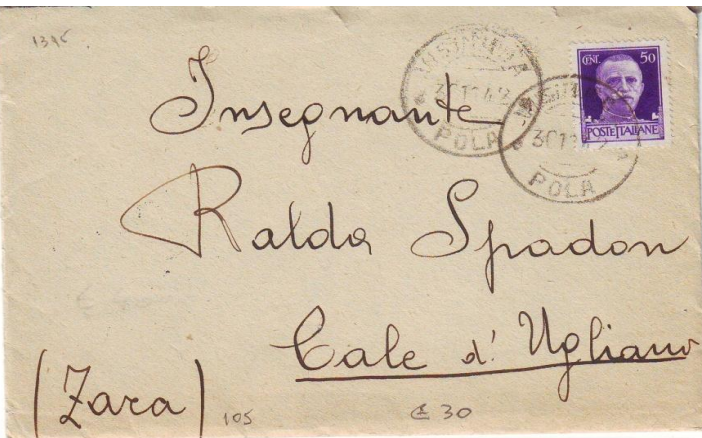 1395
CENT. 50
POSTE ITALIANE
POLA
POLA
Insegnante
Ralda Spadon
Cale d' Ugliano
(Zara)
105
€ 30